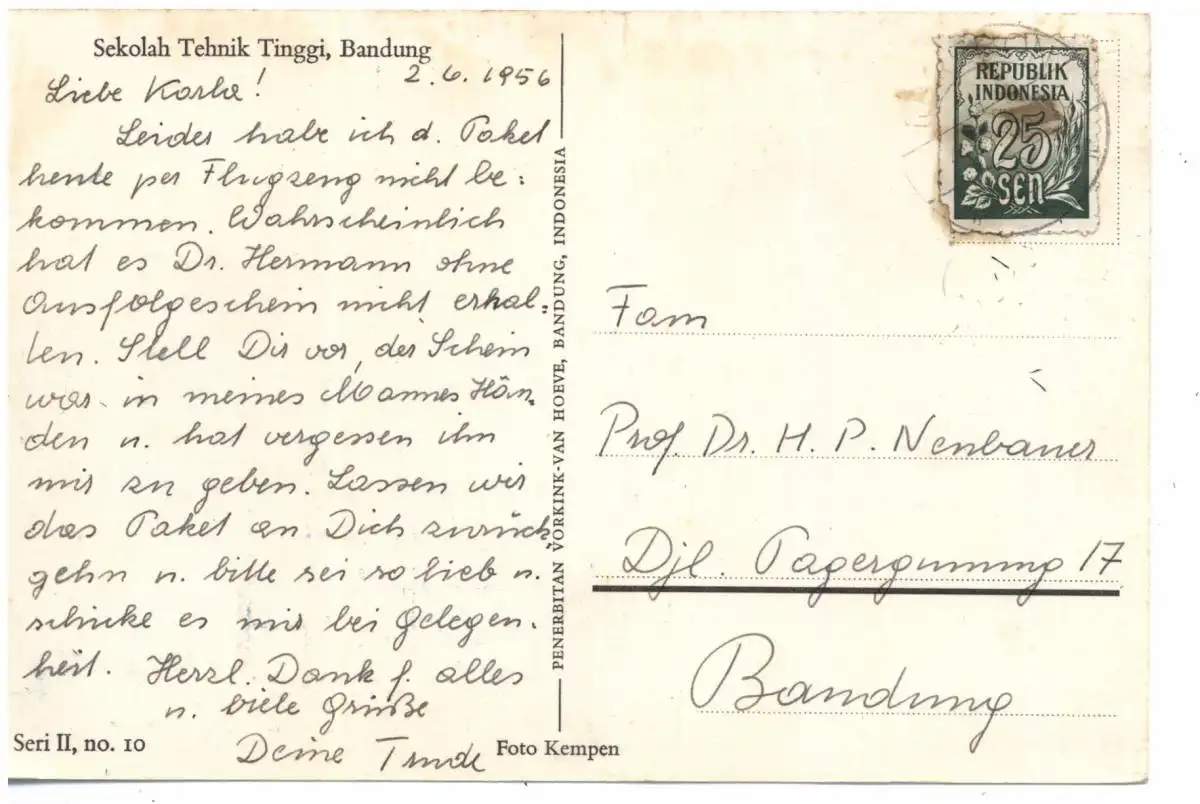 Sekolah Tehnik Tinggi, Bandung
2.6.1956
Liebe Karla!
Leider habe ich d. Paket
heute per Flugzeug nicht be:
kommen. Wahrscheinlich
hat es Dr. Hermann ohne
Ausfolgeschein nicht erhal:
ten. Stell Dir vor, der Schein
war in meines Mannes Hän:
den u. hat vergessen ihn
mir zu geben. Lassen wir
das Paket an Dich zurück
gehn u. bitte sei so lieb u.
schicke es mir bei Gelegen.
heit. Herzl. Dank f. alles
u. viele Grüße
Deine Trude
Seri II, no. 10
Foto Kempen
PENERBITAN VORKINK-VAN HOEVE, BANDUNG, INDONESIA
REPUBLIK
INDONESIA
25
SEN
Fam
Prof. Dr. H. P. Neubauer
Djl. Pagergunung 17
Bandung